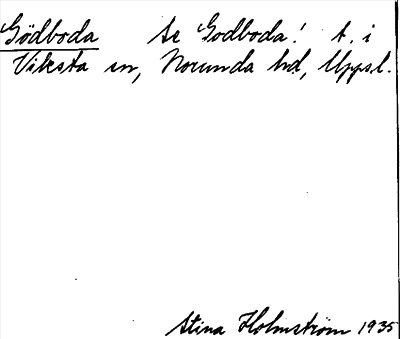 Gödboda Se Godboda! t. i
Viksta sn, Norunda hd, Uppsl.
Stina Holmström 1935